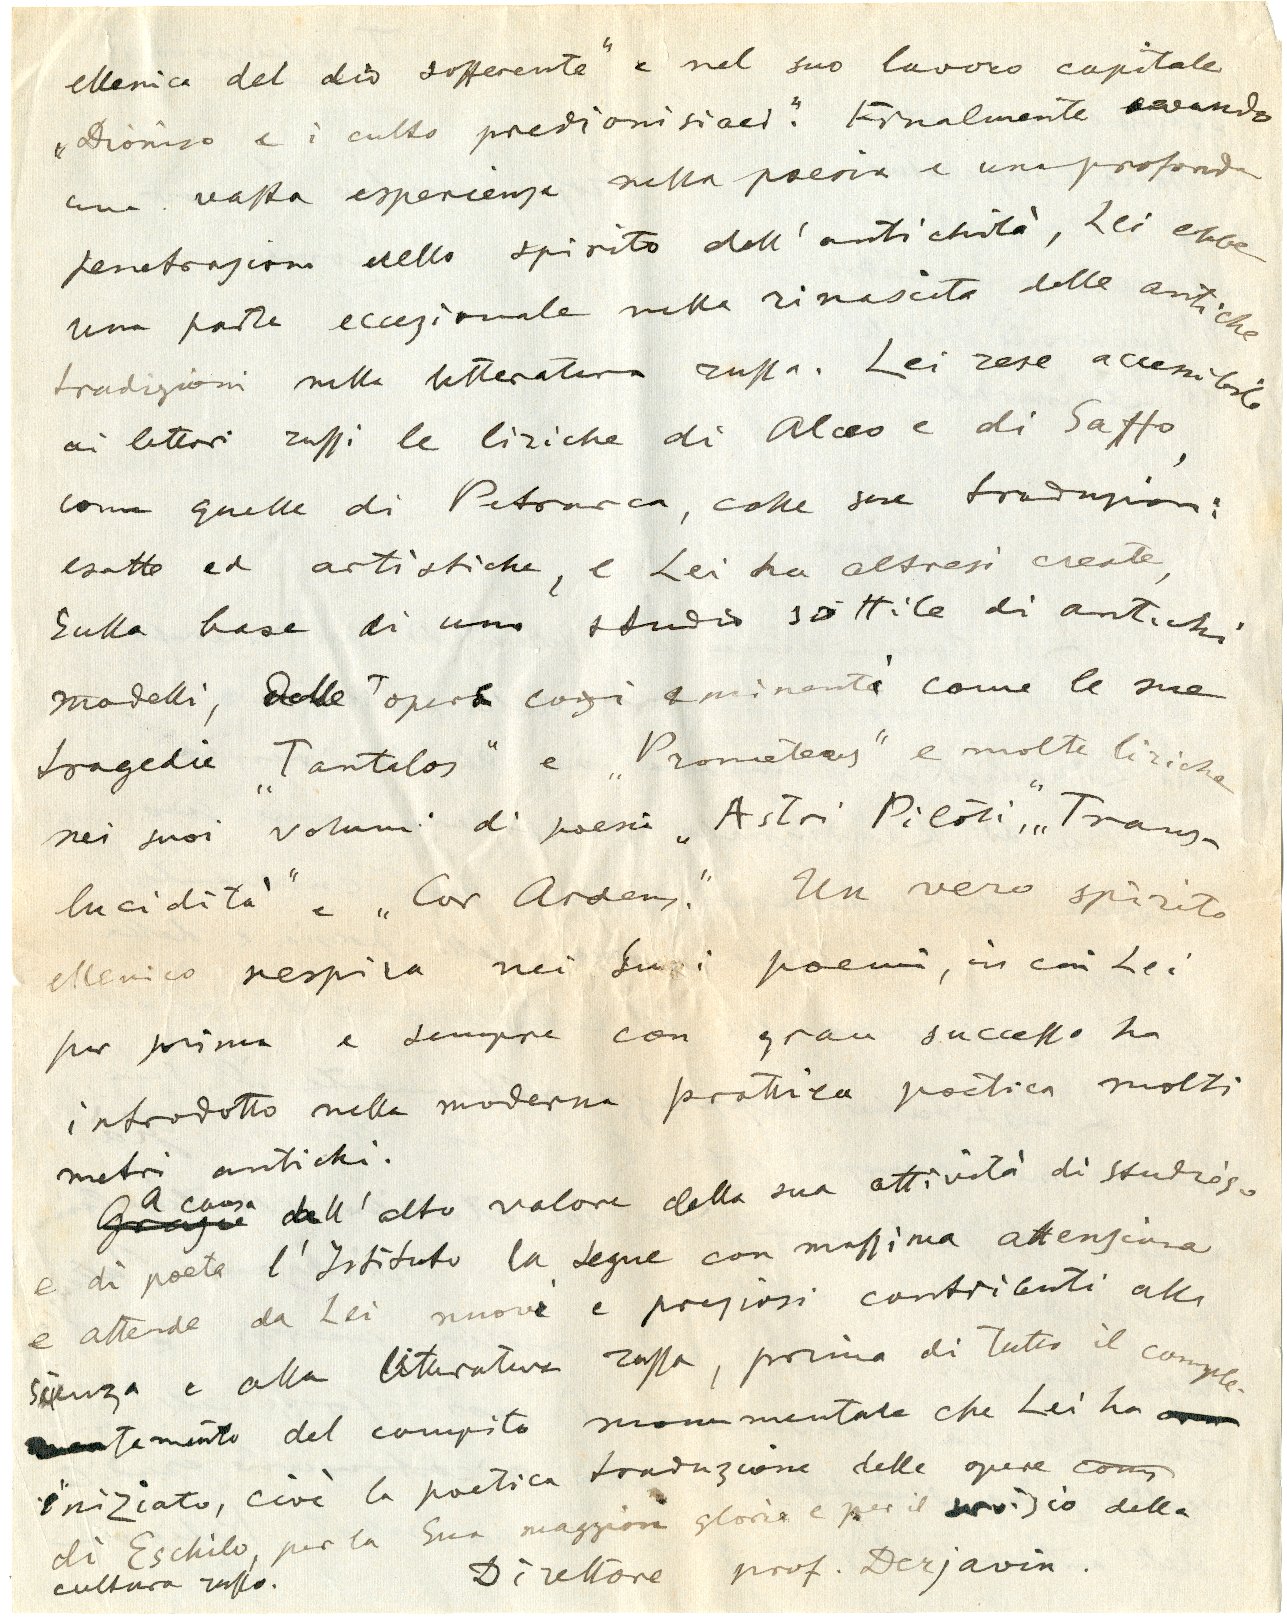 ellenica del dio sofferente" e nel suo lavoro capitale
„Dioniso e i culto predionisiaci". Finalmente avendo
una vasta esperienza nella poesia e una profonda
penetrazione nello spirito dell'antichità, Lei ebbe
una parte eccezionale nella rinascita delle antiche
tradizioni nella letteratura russa. Lei rese accessibile
ai lettori russi le liriche di Alceo e di Saffo,
come quelle di Petrarca, colle sue traduzioni
esatte ed artistiche, e Lei ha altresi create,
sulla base di uno studio sottile di antichi
modelli, opere cosi eminenti come le sue
tragedie „Tantalos" e „Prometeus" e molte liriche
nei suoi volumi di poesie „Astri Piloti", „Trans-
lucidità" e „Cor Ardens". Un vero spirito
ellenico respira nei Suoi poemi, in cui Lei
per prima e sempre con gran successo ha
introdotto nella moderna prattica poetica molti
metri antichi.
A causa dell'alto valore della sua attività di studioso
e di poeta l'Istituto la segue con massima attenzione
e attende da Lei nuovi e preziosi contributi alla
scienza e alla literatura russa, prima di tutto il comple-
tamento del compito monumentale che Lei ha
iniziato, cioè la poetica traduzione delle opere
di Eschilo, per la Sua maggiore gloria e per il servizio della
cultura russa.
Direttore prof. Derjavin.